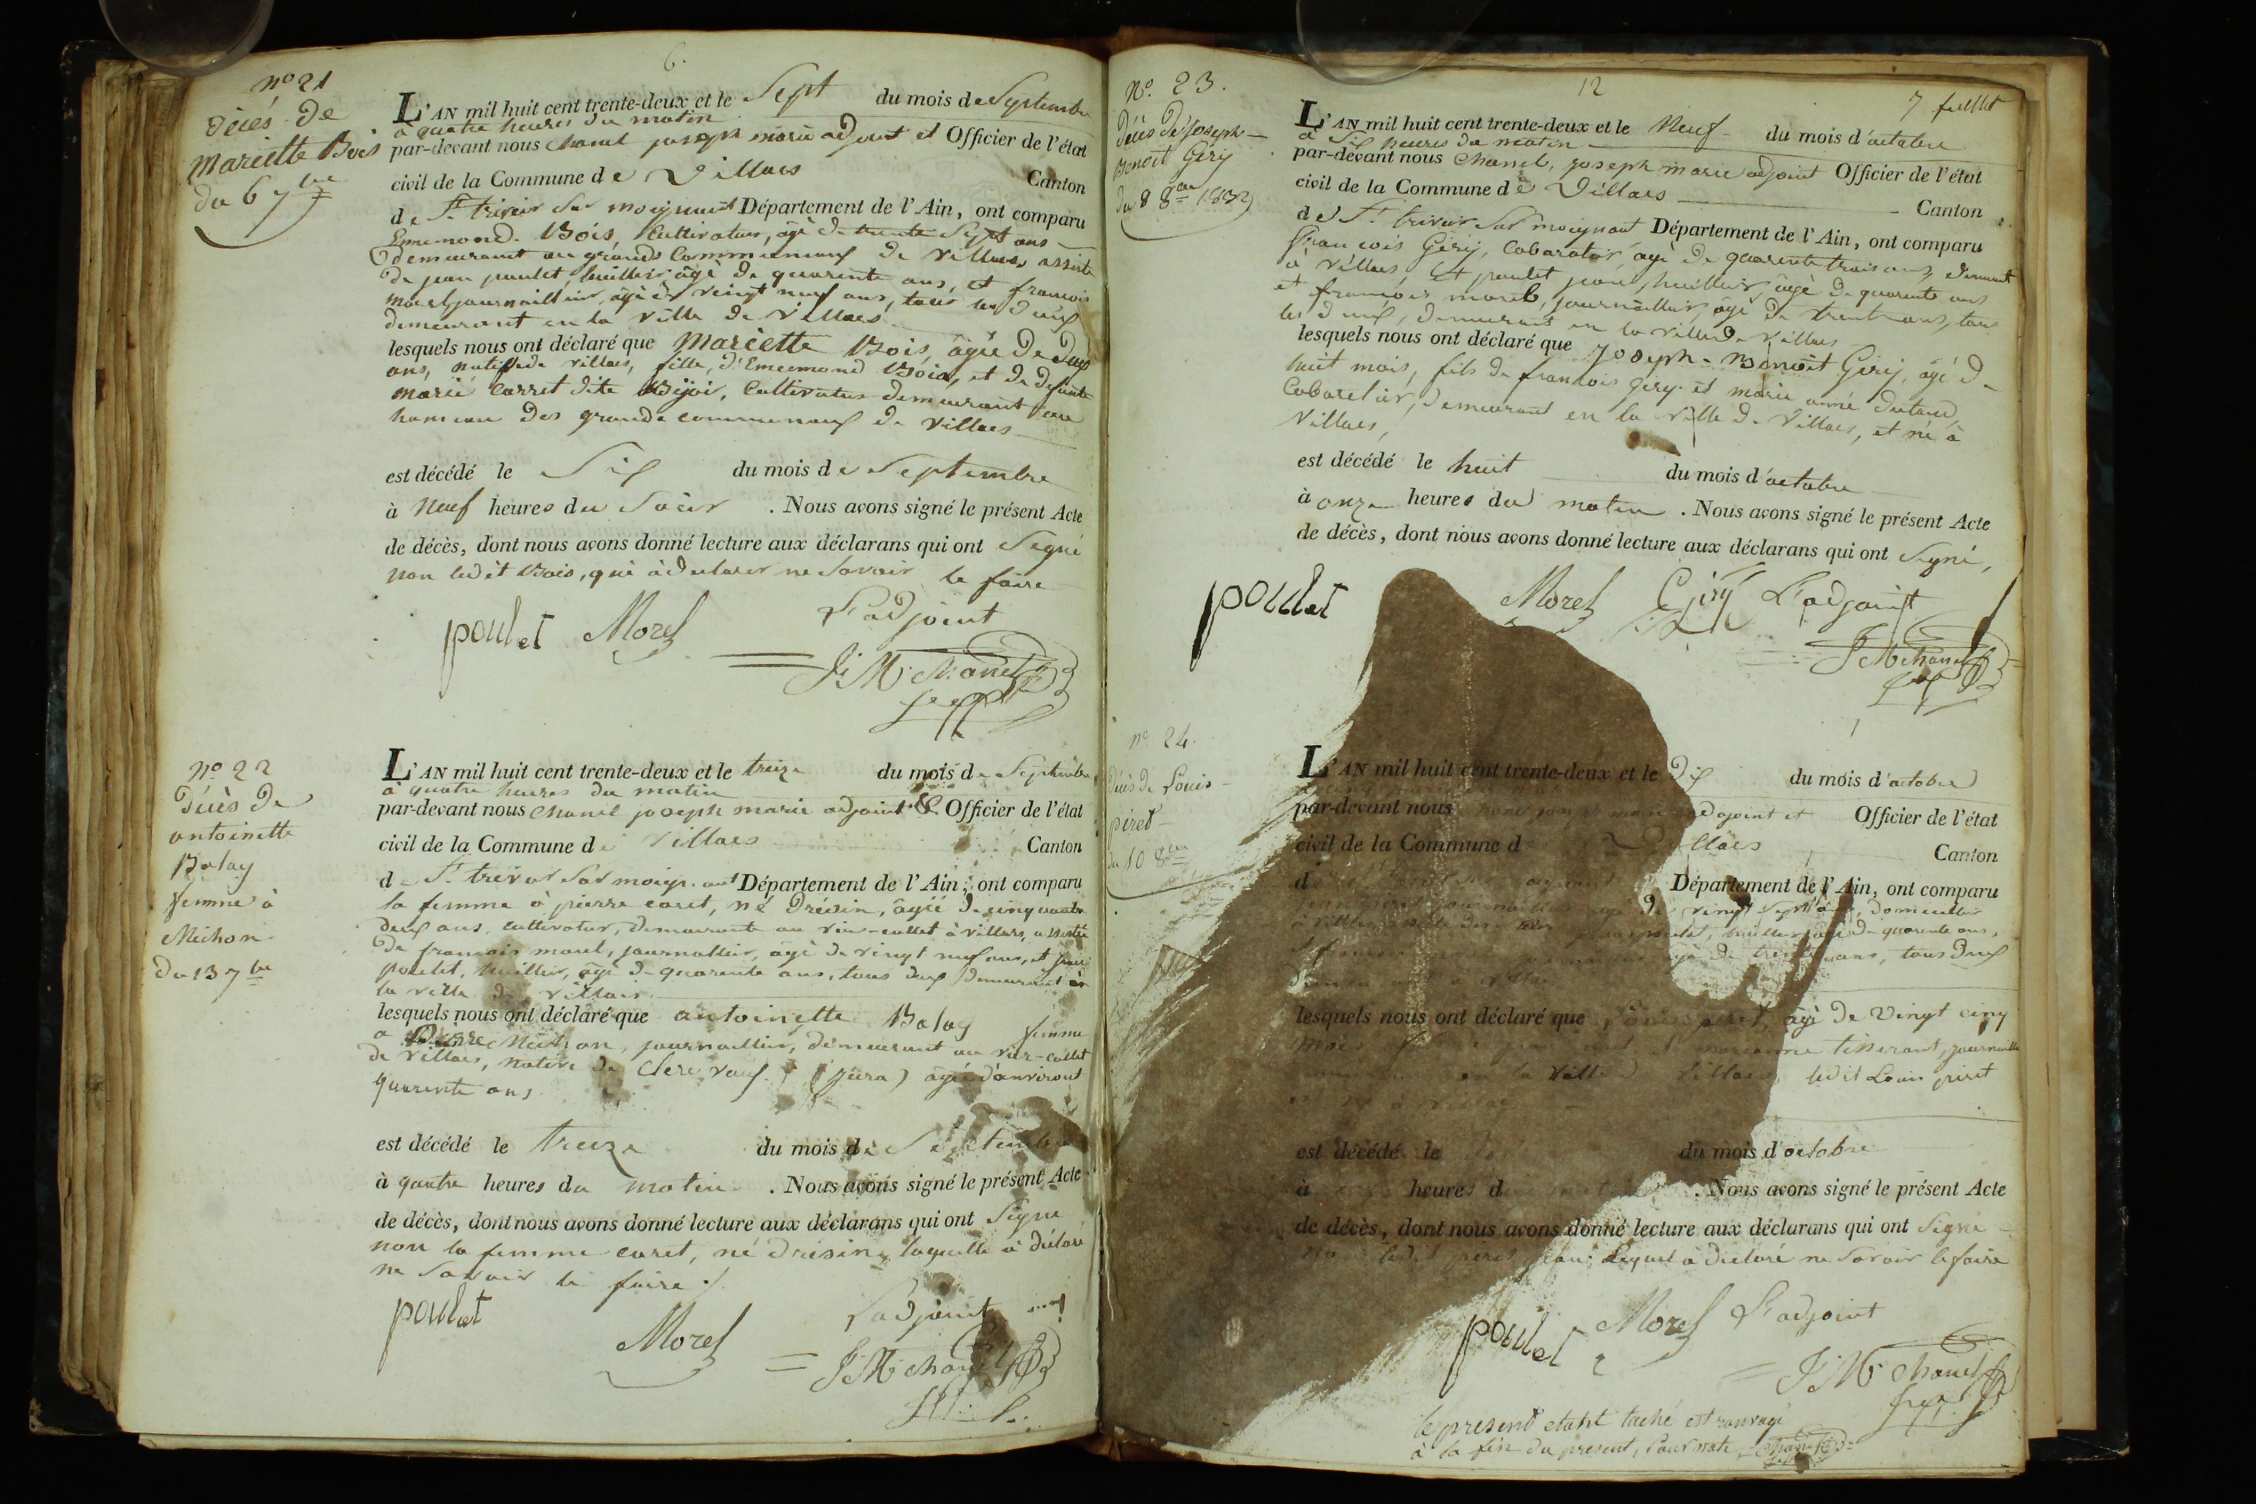 6.
nº 21
décés de
Mariette Bois
du 6 7bre
L'AN mil huit cent trente-deux et le Sept du mois de Septembre
à quatre heures du matin
par-devant nous Chanel joseph marie adjoint et Officier de l'état
civil de la Commune de Villars Canton
de St. trivier Sur moignant Département de l'Ain, ont comparu
Emmemond Bois, Cultivateur, âgé de trente Sept ans
demeurant au grands Communaux de Villars, assisté
de jean poulet, huillier âgé de quarente ans, et francois
morel journaillier, âgé de vingt neuf ans, tous les deux
demeurant en la ville de Villars
lesquels nous ont déclaré que Mariette Bois, âgée de deux
ans, native de villars, fille, d'Emmemond Bois, et de defunte
marie Carret dite Bijoi, Cultivateur demeurant au
hameau des grands communaux de Villars
est décédé le Six du mois de Septembre
à Neuf heures du Soir . Nous avons signé le présent Acte
de décès, dont nous avons donné lecture aux déclarans qui ont Signé
non ledit Bois, qui à declarer ne Savoir le faire
poulet Morel L'adjoint
J. M. Chanel
Nº 22
Décès de
antoinette
Balay
femme à
Michon
du 13 7bre
L'AN mil huit cent trente-deux et le treize du mois de Septembre
à quatre heures du matin
par-devant nous Chanel joseph marie adjoint & Officier de l'état
civil de la Commune de Villars Canton
de St. trivier Sur moignant Département de l'Ain, ont comparu
la femme à pierre caret, né Drésin, âgée de cinquante
deux ans, cultivateur, demeurante au vier-collet à villars, assistée
de francois morel, journallier, âgé de vingt neuf ans, et jean
poulet, huillier, âgé de quarente ans, tous deux demeurant en
la ville de villars
lesquels nous ont déclaré que antoinette Balay femme
a pierre Michon, journaillier, demeurant au vier-collet
de Villars, native de Clervaux (jura) âgée d'environt
quarente ans
est décédé le treize du mois de Septembre
à quatre heures du matin . Nous avons signé le présent Acte
de décès, dont nous avons donné lecture aux déclarans qui ont Signé
non la femme caret, né Drésin, laquelle à déclaré
ne Savoir le faire ./.
poulet Morel L'adjoint
J. M. Chanel
12
7 fuellet
Nº. 23.
Décés de Joseph-
Benoit Géry
du 8 8bre 1832
L'AN mil huit cent trente-deux et le Neuf du mois d'octobre
à Six heures du matin
par-devant nous Chanel, joseph marie adjoint Officier de l'état
civil de la Commune de Villars Canton
de St. trivier Sur moignant Département de l'Ain, ont comparu
François Géry, Cabaretier, âgé de quarente trois ans, demeurant
à Villars, Et poulet jean, huillier âgé de quarente ans
et francois morel, journallier, âgé de trente ans, tous
les deux, demeurant en la ville de villars
lesquels nous ont déclaré que Joseph-Benoit Géry, âgé de
huit mois, fils de francois géry et marie anne
Cabaretier, demeurant en la ville de Villars, et né à
Villars,
est décédé le huit du mois d'octobre
à onze heures du matin . Nous avons signé le présent Acte
de décès, dont nous avons donné lecture aux déclarans qui ont Signé,
poulet Morel Géry L'adjoint
J M Chanel
nº 24.
Décès de Louis
piret
du 10 8bre
L'AN mil huit cent trente-deux et le Dix du mois d'octobre
par-devant nous Chanel joseph marie adjoint et Officier de l'état
civil de la Commune d Villars Canton
de Département de l'Ain, ont comparu
de vingt Sept ans, Domicillier
à villars poulet, huillier âgé de quarente ans,
âgé de trente ans, tous deux
lesquels nous ont déclaré que Louis piret âgé de Vingt cinq
mois marianne tisserant, journallier
en la Ville de Villars, ledit Louis piret
né à Villars
est décédé le du mois d'octobre
à heures du matin . Nous avons signé le présent Acte
de décès, dont nous avons donné lecture aux déclarans qui ont Signé
non ledit piret jean, Lequel à déclaré ne Savoir le faire
poulet Morel L'adjoint
J M Chanel
le présent etant taché est
à la fin du présent, Chanel